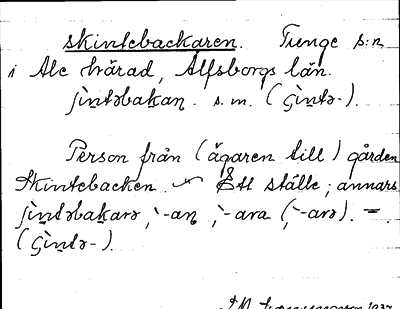 skintebackaren. Tunge s:n
i Ale härad, Älfsborgs län.
ʃìntəbakaṇ. s. m. (çìntə-).
Person från (ägaren till) gården
Skintebacken. Ett ställe; annars
ʃìntəbakarə, -aṇ, -ara (, -arə). =
(çìntə-).